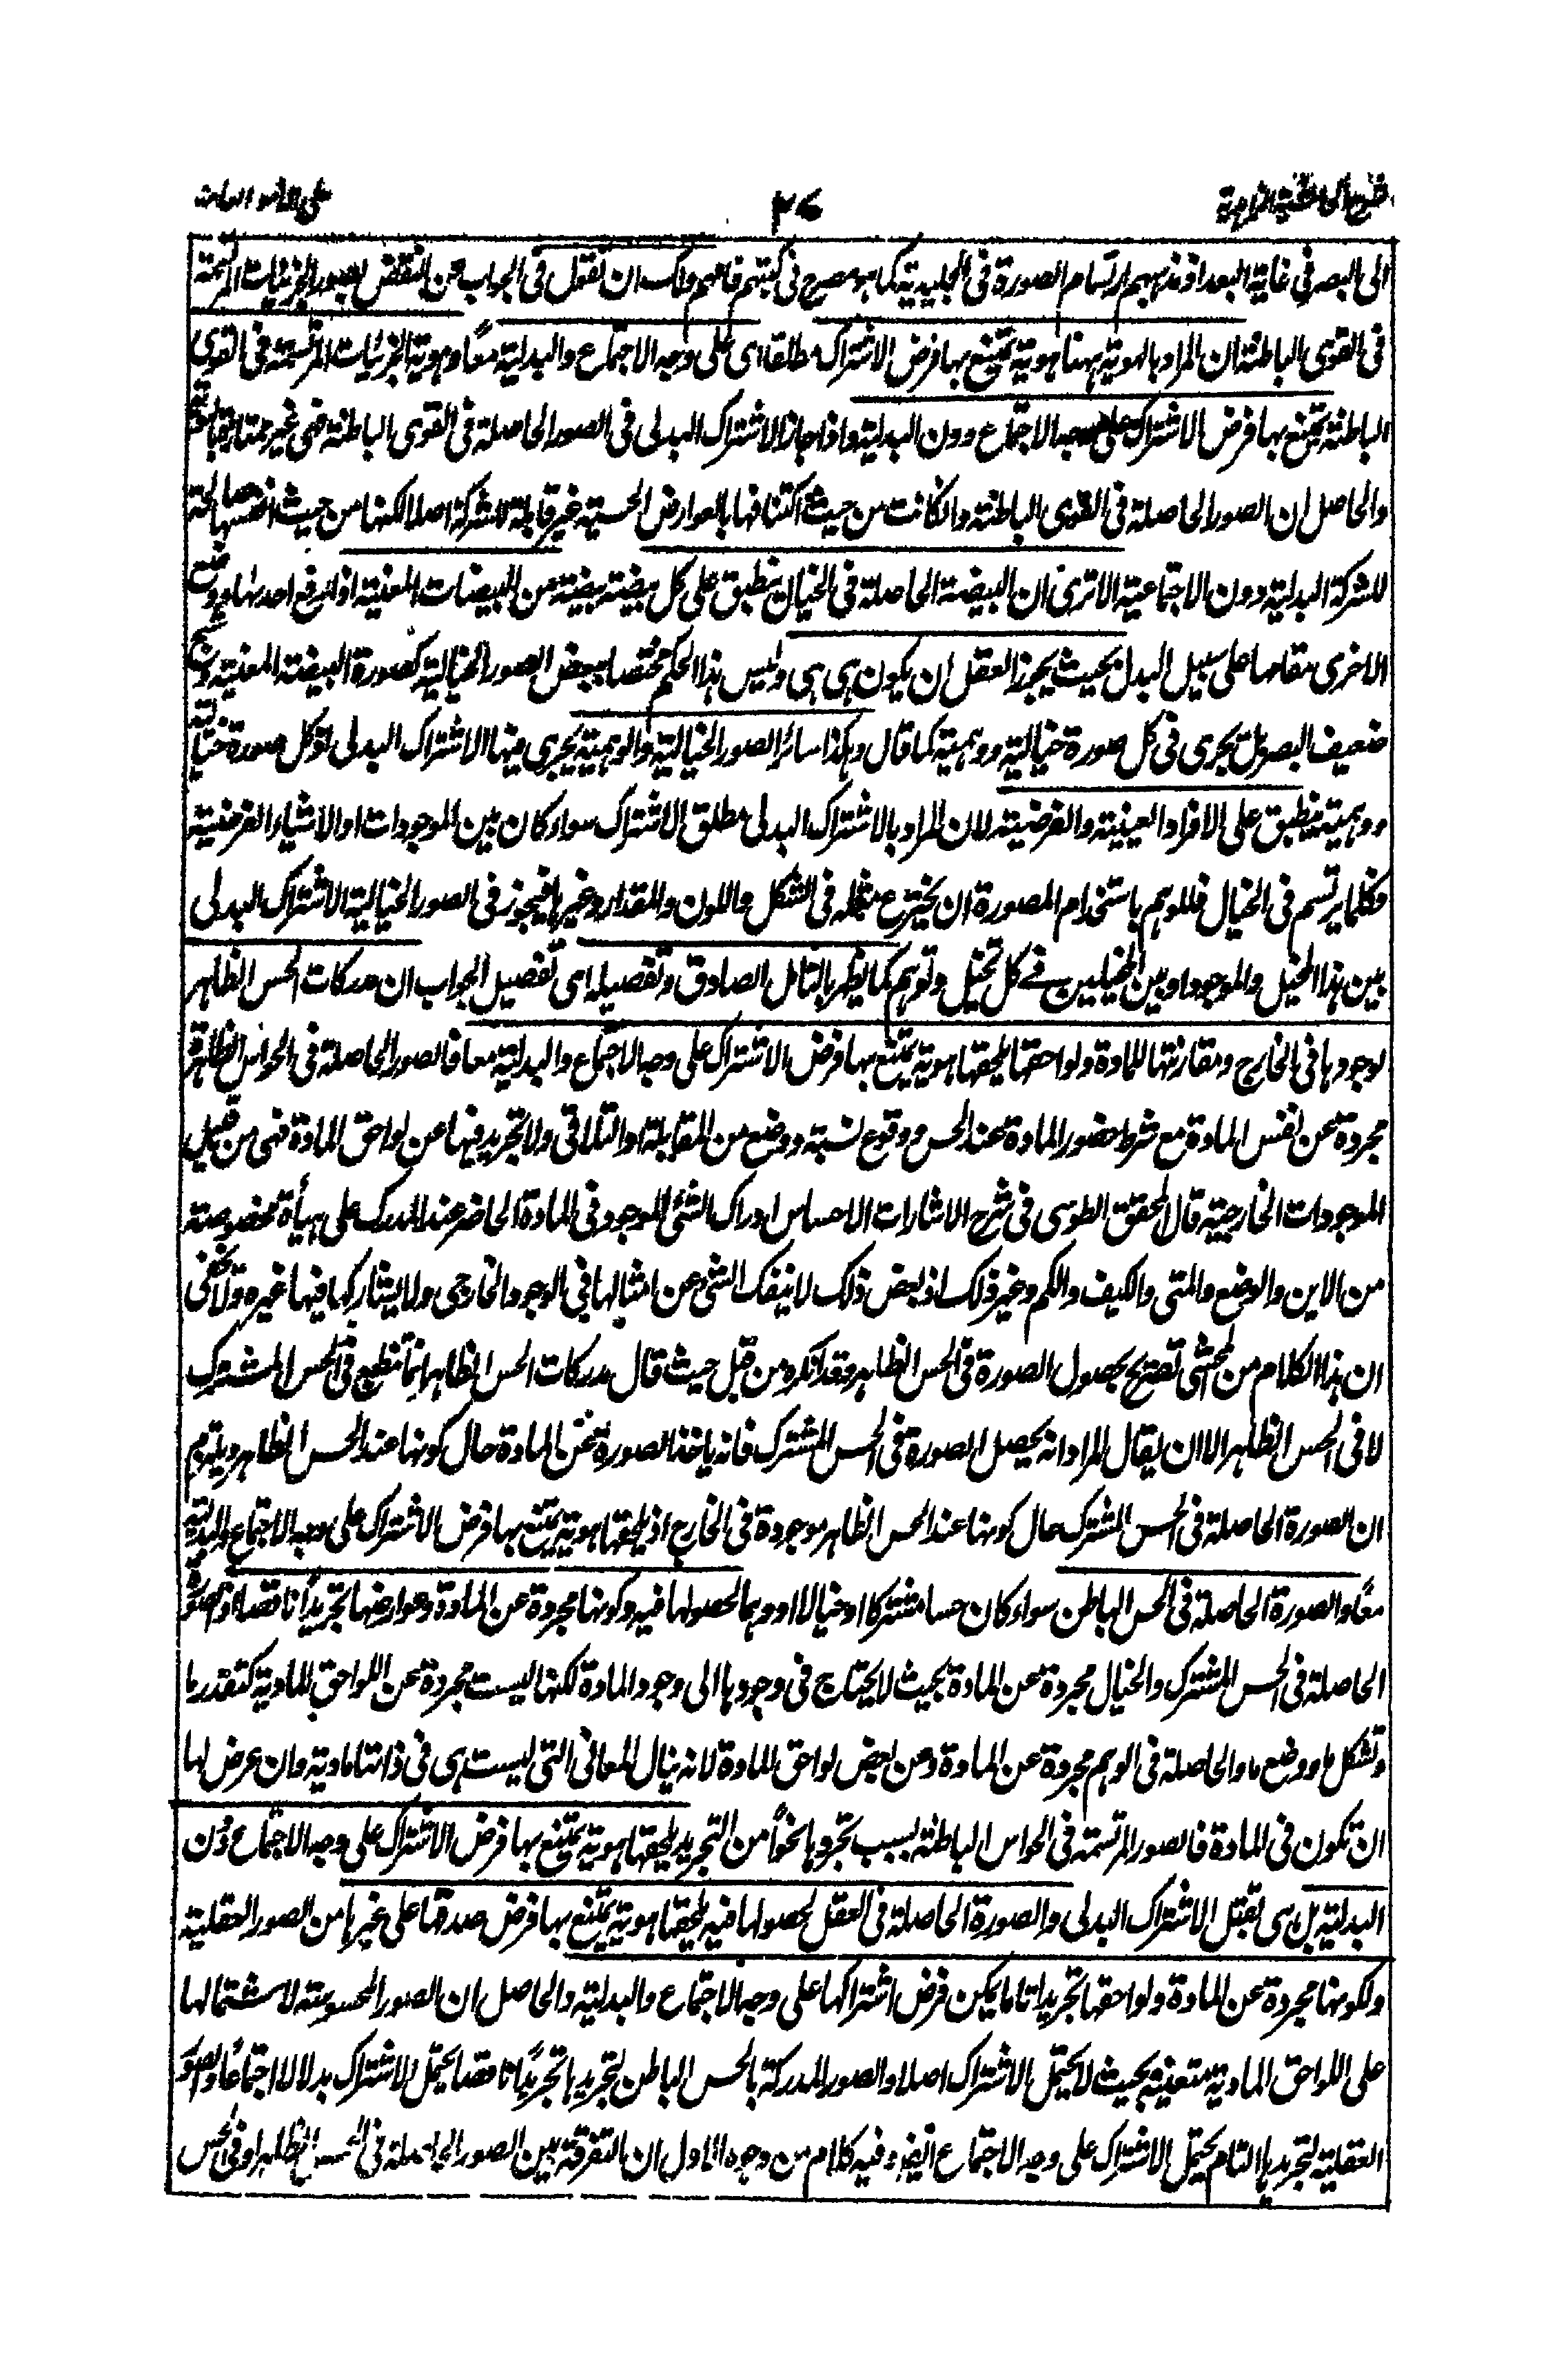 ٣٤
الى البصر فى غاية البعد اذ مذهبهم ارتسام الصورة فى الجليدية كما هو مصرح فى كتبهم فافهم ولك ان تقول فى الجواب عن النقض بصور الجزئيات المرتسمة
فى القوى الباطنة ان المراد بالهوية ههنا هوية يمتنع بها فرض الاشتراك مطلقا اى على وجه الاجتماع والبدلية معاً وهوية الجزئيات المرتسمة فى القوى
الباطنة يمتنع بها فرض الاشتراك على وجه الاجتماع دون البدلية واذا جاز الاشتراك البدلى فى الصور الحاصلة فى القوى الباطنة فهى غير
والحاصل ان الصور الحاصلة فى القوى الباطنة وانكانت من حيث اكتنافها بالعوارض الحسية غير قابلة للشركة اصلا لكنها من حيث انفسها صالحة
للشركة البدلية دون الاجتماعية الا ترى ان البيضة الحاصلة فى الخيال ينطبق على كل بيضة بيضة من البيضات المعنية اذا رفع احدىها ووضع
الاخرى مقامها على سبيل البدل بحيث يجوز العقل ان يكون هى هى وليس هذا الحكم مختصا ببعض الصور الخيالية كصورة البيضة المعنية
ضعيف البصر بل يجرى فى كل صورة خيالية ووهمية كما قال وهكذا سائر الصور الخيالية والوهمية يجرى فيها الاشتراك البدلى اذ كل صورة خيالية
ووهمية ينطبق على الافراد العينية والفرضية لان المراد بالاشتراك البدلى مطلق الاشتراك سواء كان بين الموجودات او الاشياء الفرضية
فكلما يرتسم فى الخيال فللوهم باستخدام المصورة ان يخترع مثله فى الشكل واللون والمقدار وغيرها فيجوز فى الصور الخيالية الاشتراك البدلى
بين هذا المخيل والموجود او بين المخيلين فى كل تخيل وتوهم كما يظهر بالتامل الصادق وتفصيله اى تفصيل الجواب ان مدركات الحس الظاهر
لوجودها فى الخارج ومقارنتها للمادة ولواحقها يلحقها هوية يمتنع بها فرض الاشتراك على وجه الاجتماع والبدلية معا فالصور الحاصلة فى الحواس الظاهرة
مجردة عن نفس المادة مع شرط حضور المادة عند الحس ووقوع نسبة ووضع من المقابلة او التلاقى ولا تجريد فيها عن لواحق المادة فهى من قبيل
الموجودات الخارجية قال المحقق الطوسى فى شرح الاشارات الاحساس ادراك الشئ الموجود فى المادة الحاضر عند المدرك على هيأة مخصوصة
من الاين والوضع والمتى والكيف والكم وغير ذلك اذ بعض ذلك لا ينفك الشئ عن امثالها فى الوجود الخارجى ولا يشاركها فيها غيره ولا يخفى
ان هذا الكلام من المحشى تصريح بحصول الصورة فى الحس الظاهر وقد انكره من قبل حيث قال مدركات الحس الظاهر انما تنطبع فى الحس المشترك
لا فى الحس الظاهر الا ان يقال المراد انه يحصل الصورة فى الحس المشترك فانه ياخذ الصورة عن المادة حال كونها عند الحس الظاهر ويلتزم
ان الصورة الحاصلة فى الحس المشترك حال كونها عند الحس الظاهر موجودة فى الخارج اذ يلحقها هوية يمتنع بها فرض الاشتراك على وجه الاجتماع والبدلية
معاً والصورة الحاصلة فى الحس الباطن سواء كان حسا مشتركا او خيالا او وهما لحصولها فيه وكونها مجردة عن المادة وعوارضها تجريداً ناقصا اذ الصورة
الحاصلة فى الحس المشترك والخيال مجردة عن المادة بحيث لا يحتاج فى وجودها الى وجود المادة لكنها ليست مجردة عن اللواحق المادية كتقدر ما
وتشكل ما ووضع ما والحاصلة فى الوهم مجردة عن المادة وعن بعض لواحق المادة لانه ينال المعانى التى ليست هى فى ذاتها مادية وان عرض لها
ان تكون فى المادة فالصور المرتسمة فى الحواس الباطنة بسبب تجردها نحواً من التجريد يلحقها هوية يمتنع بها فرض الاشتراك على وجه الاجتماع دون
البدلية بل هى تقبل الاشتراك البدلى والصورة الحاصلة فى العقل لحصولها فيه يلحقها هوية يمتنع بها فرض صدقها على غيرها من الصور العقلية
ولكونها مجردة عن المادة ولواحقها تجريدا تاما يمكن فرض اشتراكها على وجه الاجتماع والبدلية والحاصل ان الصور المحسوسة لاشتمالها
على اللواحق المادية متعينة بحيث لا يحتمل الاشتراك اصلا والصور المدركة بالحس الباطن لتجريدها تجريدًا ناقصا يحتمل الاشتراك بدلا لا اجتماعًا والصور
العقلية لتجريدها التام يحتمل الاشتراك على وجه الاجتماع ايضا وفيه كلام من وجوه الاول ان التفرقة بين الصور الحاصلة فى الحس الظاهر او فى الحس